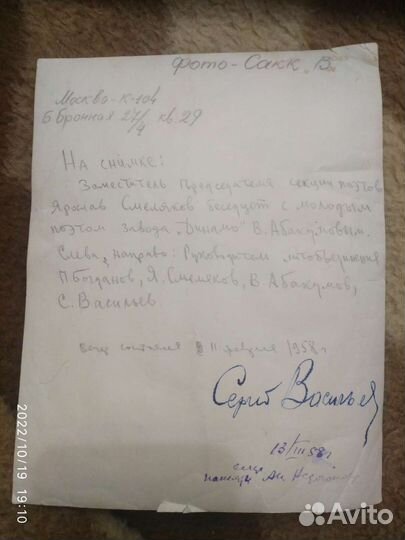 Фото-Сакк В.
Москва-К-104
Б Бронная 27/9 кв. 29
На снимке:
Заместитель Председателя секции поэтов
Ярослав Смеляков беседует с молодым
поэтом завода "Динамо" В. Абакумовым.
Слева направо: Руководитель литобъединения
П. Богданов, Я. Смеляков, В. Абакумов,
С. Васильев.
состоялся 11 февраля 1958 г
Сергей Васильев
13/III 58 г
2022/10/19 19:10
Avito